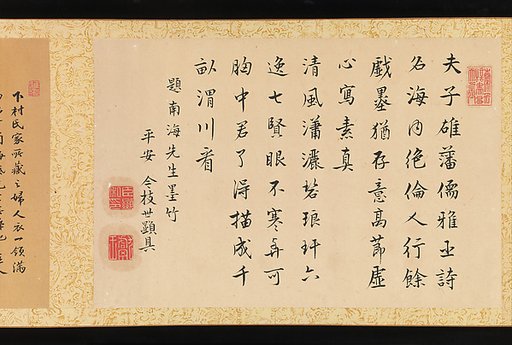 夫子雄藩儒雅並詩
名海内絶倫人行餘
戯墨猶存意高節虚
心寫素真
清風瀟灑碧琅玕六
逸七賢眼不寒弄可
胸中君了得描成千
畝渭川看
題南海先生墨竹
平安 今枝世顕具
下村氏家所蔵之婦人衣一領満